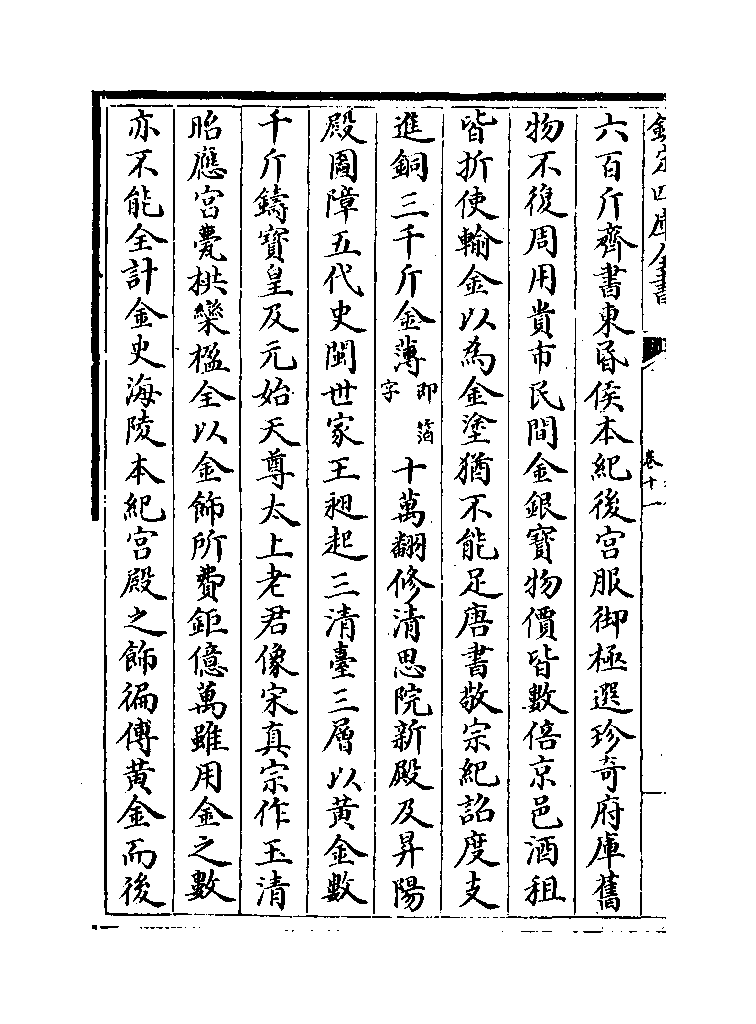 欽定四庫全書
卷十一
六百斤齊書東昏侯本紀後宮服御極選珍奇府庫舊
物不復周用貴市民間金銀寳物價皆數倍京邑酒租
皆折使輸金以為金塗猶不能足唐書敬宗紀詔度支
進銅三千斤金薄即箔字十萬翻修清思院新殿及昇陽
殿圖障五代史閩世家王昶起三清臺三層以黃金數
千斤鑄寳皇及元始天尊太上老君像宋真宗作玉清
昭應宮甍栱欒楹全以金飾所費鉅億萬雖用金之數
亦不能全計金史海陵本紀宮殿之飾徧傅黃金而後